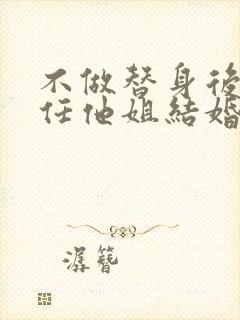 不做替身後
任他姐結婚
潺簪